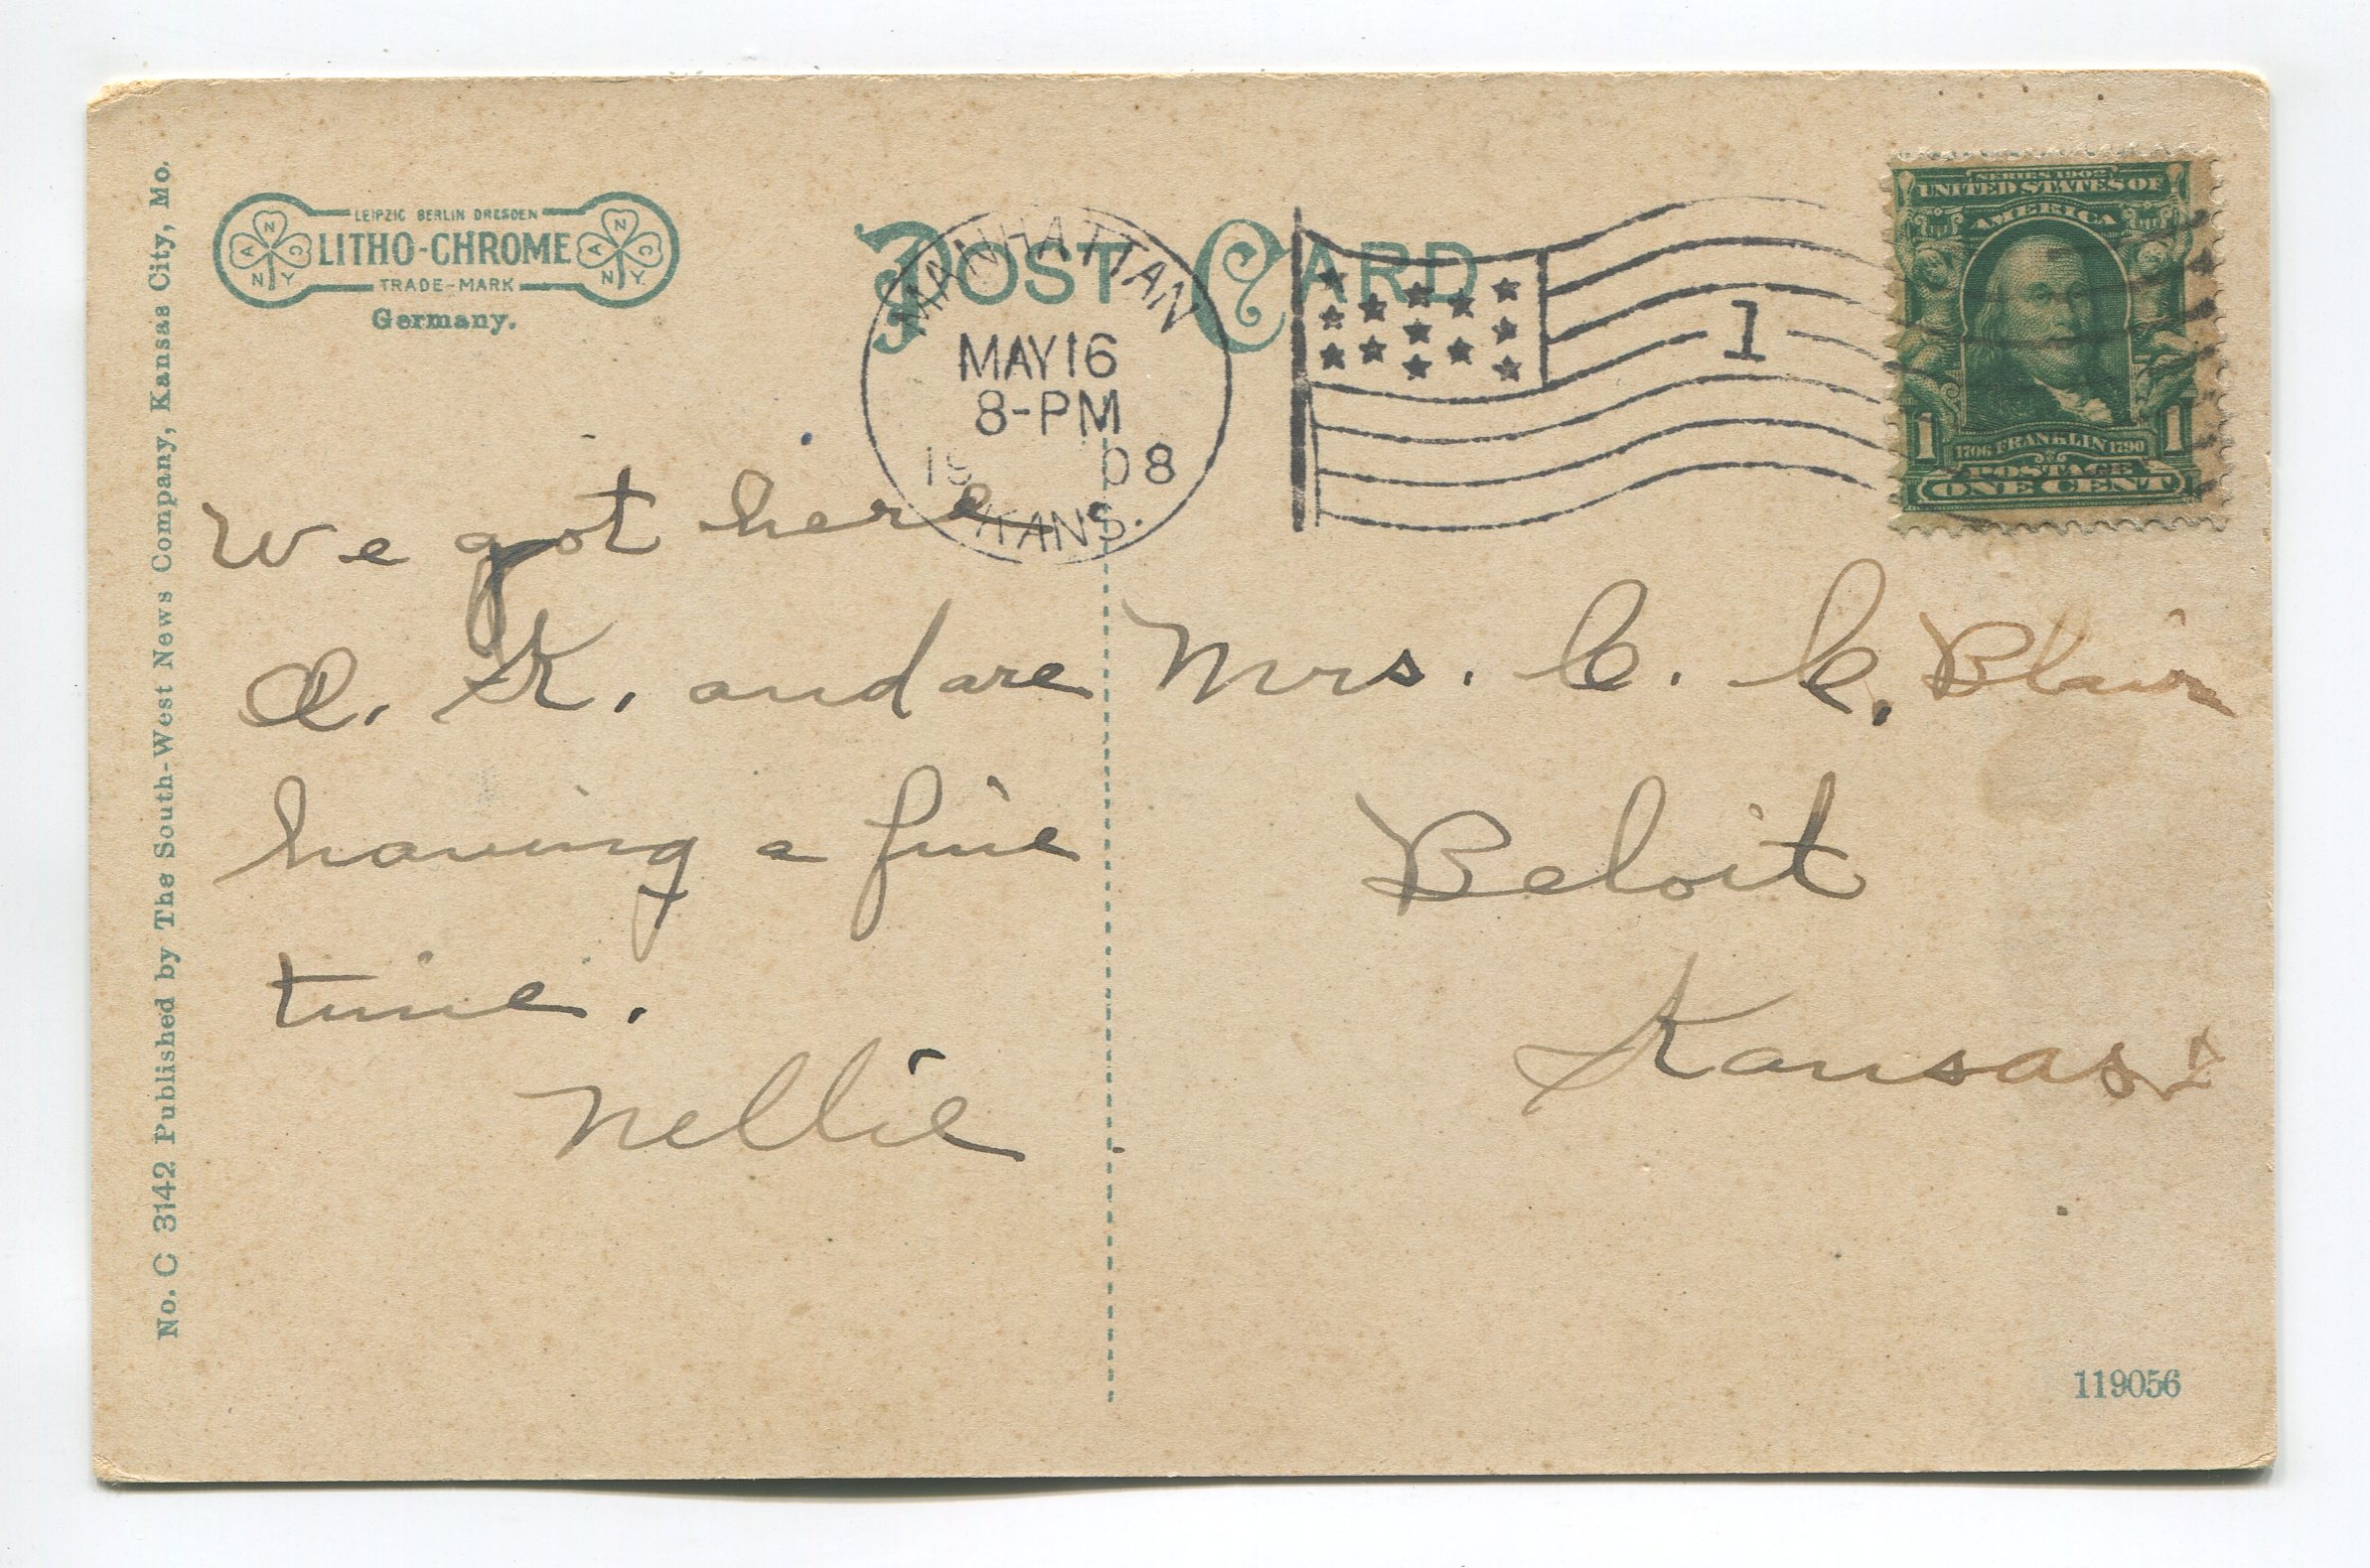 No. C 3142 Published by The South-West News Company, Kansas City, Mo.
LEIPZIG BERLIN DRESDEN
LITHO-CHROME
TRADE-MARK
Germany.
A N C N Y
A N C N Y
POST CARD
MANHATTAN
MAY 16
8-PM
1908
KANS.
1
SERIES 1902
UNITED STATES OF
AMERICA
1 1
1706 FRANKLIN 1790
POSTAGE
ONE CENT
We got here
O. K. and are
having a fine
time.
Nellie
Mrs. C. C. Blair
Beloit
Kansas
119056